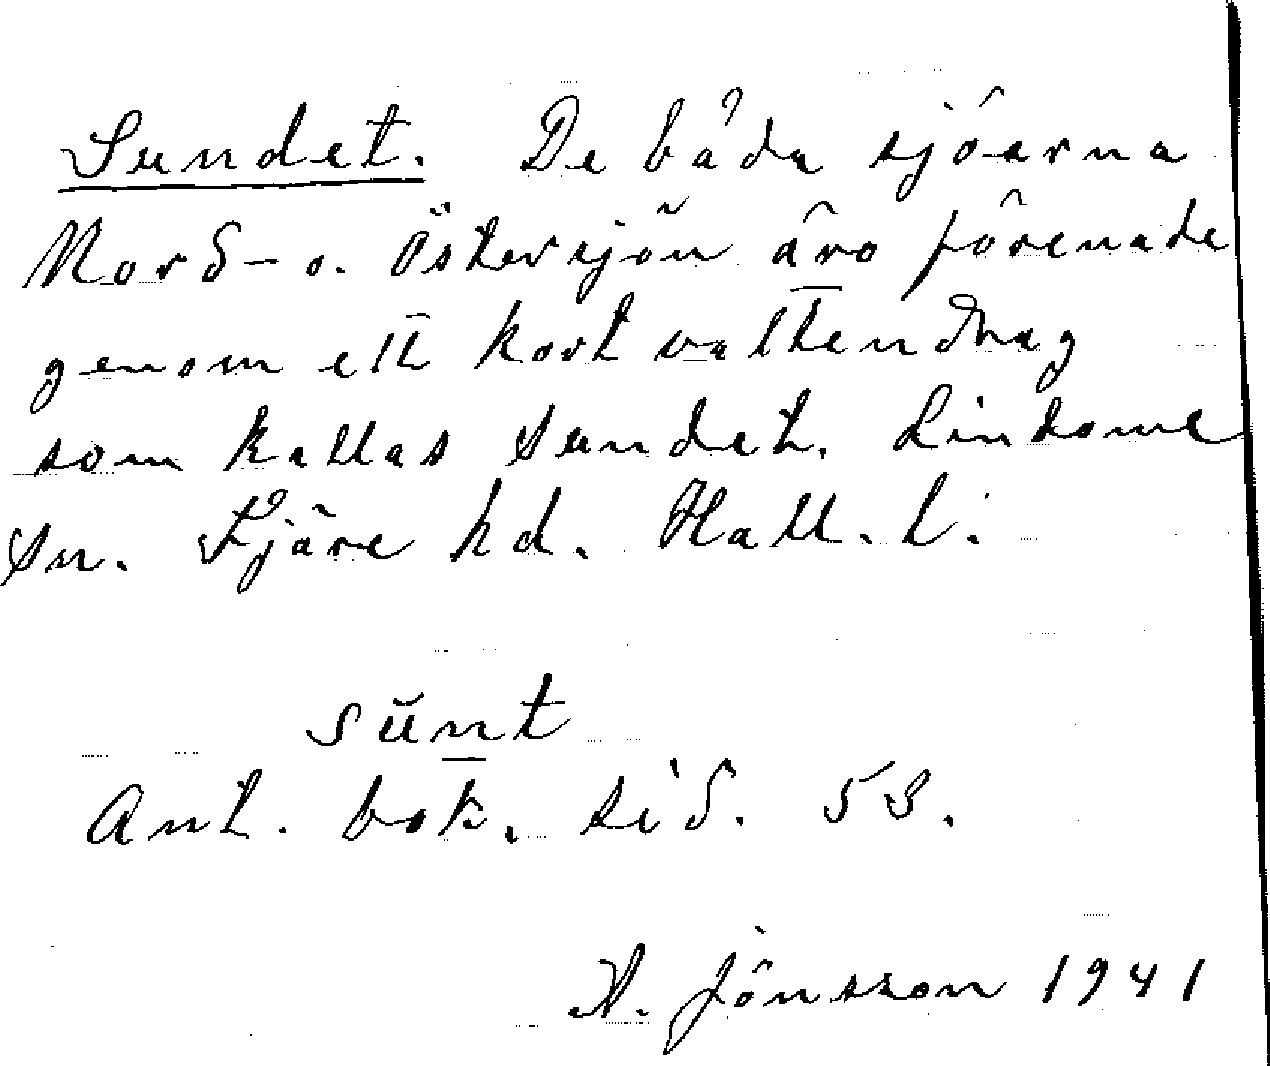 Sundet. De båda sjöarna
Nord- o. Östersjön äro förenade
genom ett kort vattendrag
som kallas Sundet. Lindome
Sn. Fjäre hd. Hall. l.
sŭnt
Ant. bok. sid. 53.
A. Jönsson 1941